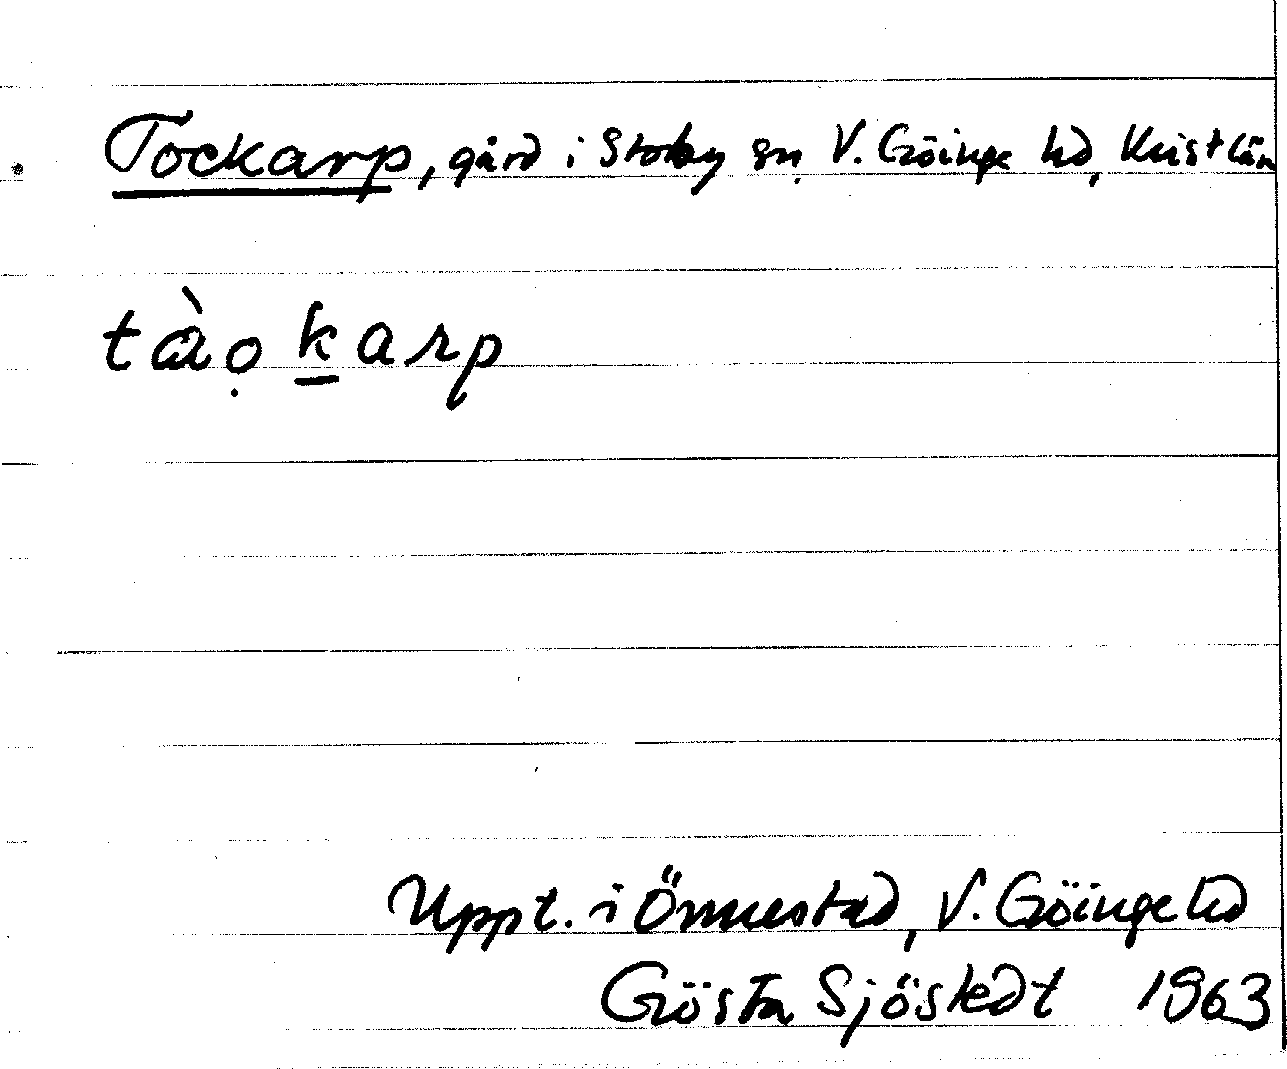 Tockarp, gård i Stoby sn, V. Göinge hd, Krist län
tàọ k̲arp
Uppt. i Önnestad, V. Göinge hd
Gösta Sjöstedt 1963